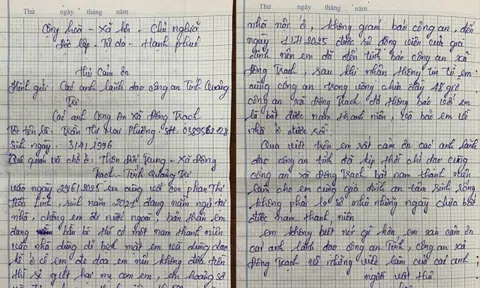 Thứ ngày tháng năm
Cộng hoà - Xã hội - Chủ nghĩa
Độc lập - Tự do - Hạnh phúc
Thư Cảm ơn
Kính gửi: Các anh lãnh đạo công an Tỉnh Quảng
Trị
Các anh Công An Xã Đông Trạch
Tôi tên là: Trần Thị Mai Phương
Sinh ngày: 1996
quán và chỗ ở: Thôn Xã Đông
Trạch - Tỉnh Quảng Trị
vào ngày em cùng với con
sinh năm đang nằm ngủ tại
nhà, chồng em đi nước ngoài, bản thân em
đang bầu bì thì có một nam thanh niên
vào nhà dùng bịch mặt em và dùng dao
kề cổ em đe doạ em nếu không đưa tiền
thì sẽ giết hai mẹ con em, em hoảng sợ
Thứ ngày tháng năm
nhà nước ở, không giám báo công an, đến
ngày được sự động viên của gia
đình nên em đã đến trình báo công an xã
Đông Trạch, sau khi nhận thông tin từ em
cùng công an trong vòng chưa đầy 48 giờ
công an xã Đông Trạch đã thông báo với em
là bắt được nam thanh niên, và bảo em về
nhà ở dưới
Qua việc trên em rất cảm ơn các anh lãnh
đạo công an tỉnh đã kịp thời chỉ đạo cùng
công an xã Đông Trạch bắt nam thanh niên
làm cho em cùng gia đình an tâm sinh sống
không phải lo sợ như những ngày chưa bắt
được nam thanh niên
em không biết nói gì hơn, em xin cảm ơn
các anh lãnh đạo công an Tỉnh, công an xã
Đông Trạch về những việc làm của các anh
người viết